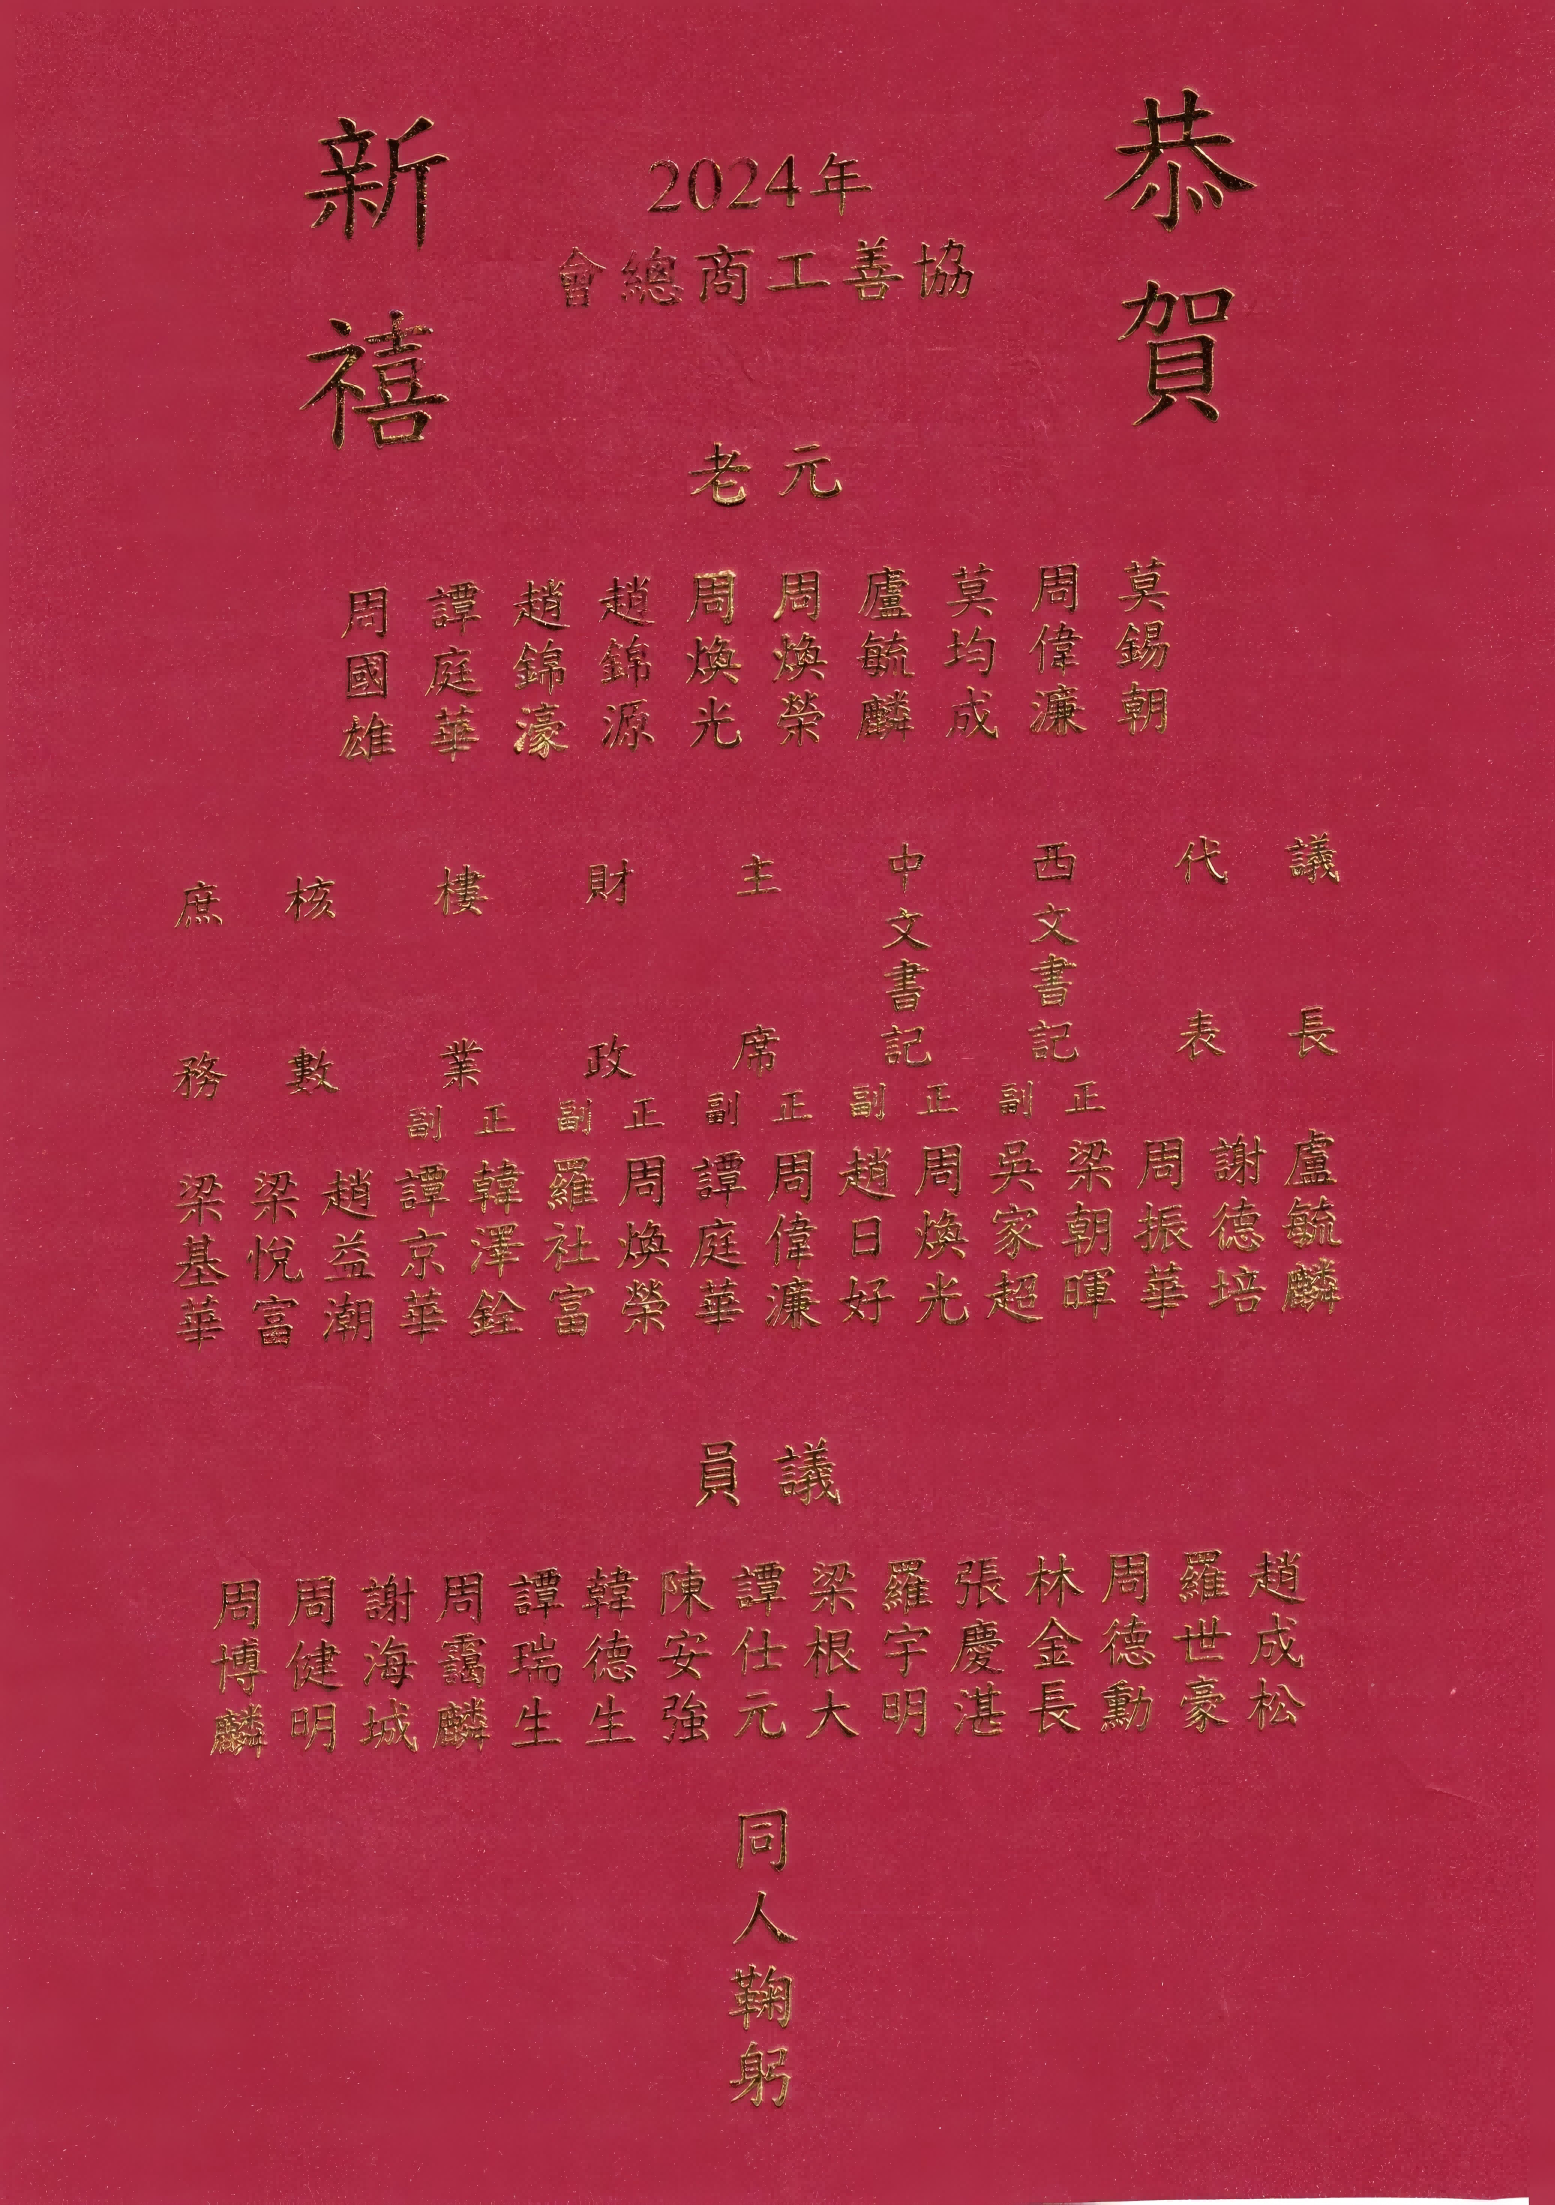 恭賀
新禧
2024年
協善工商總會
元老
莫錫朝
周偉濂
莫均成
廬毓麟
周煥榮
周煥光
趙錦源
趙錦濠
譚庭華
周國雄
議長
盧毓麟
代表
謝德培
周振華
西文書記
正
梁朝暉
副
吳家超
中文書記
正
周煥光
副
趙日好
主席
正
周偉濂
副
譚庭華
財政
正
周煥榮
副
羅社富
樓業
正
韓澤銓
副
譚京華
核數
趙益潮
梁悅富
庶務
梁基華
議員
趙成松
羅世豪
周德勳
林金長
張慶湛
羅宇明
梁根大
譚仕元
陳安強
韓德生
譚瑞生
周靄麟
謝海城
周健明
周博麟
同人鞠躬